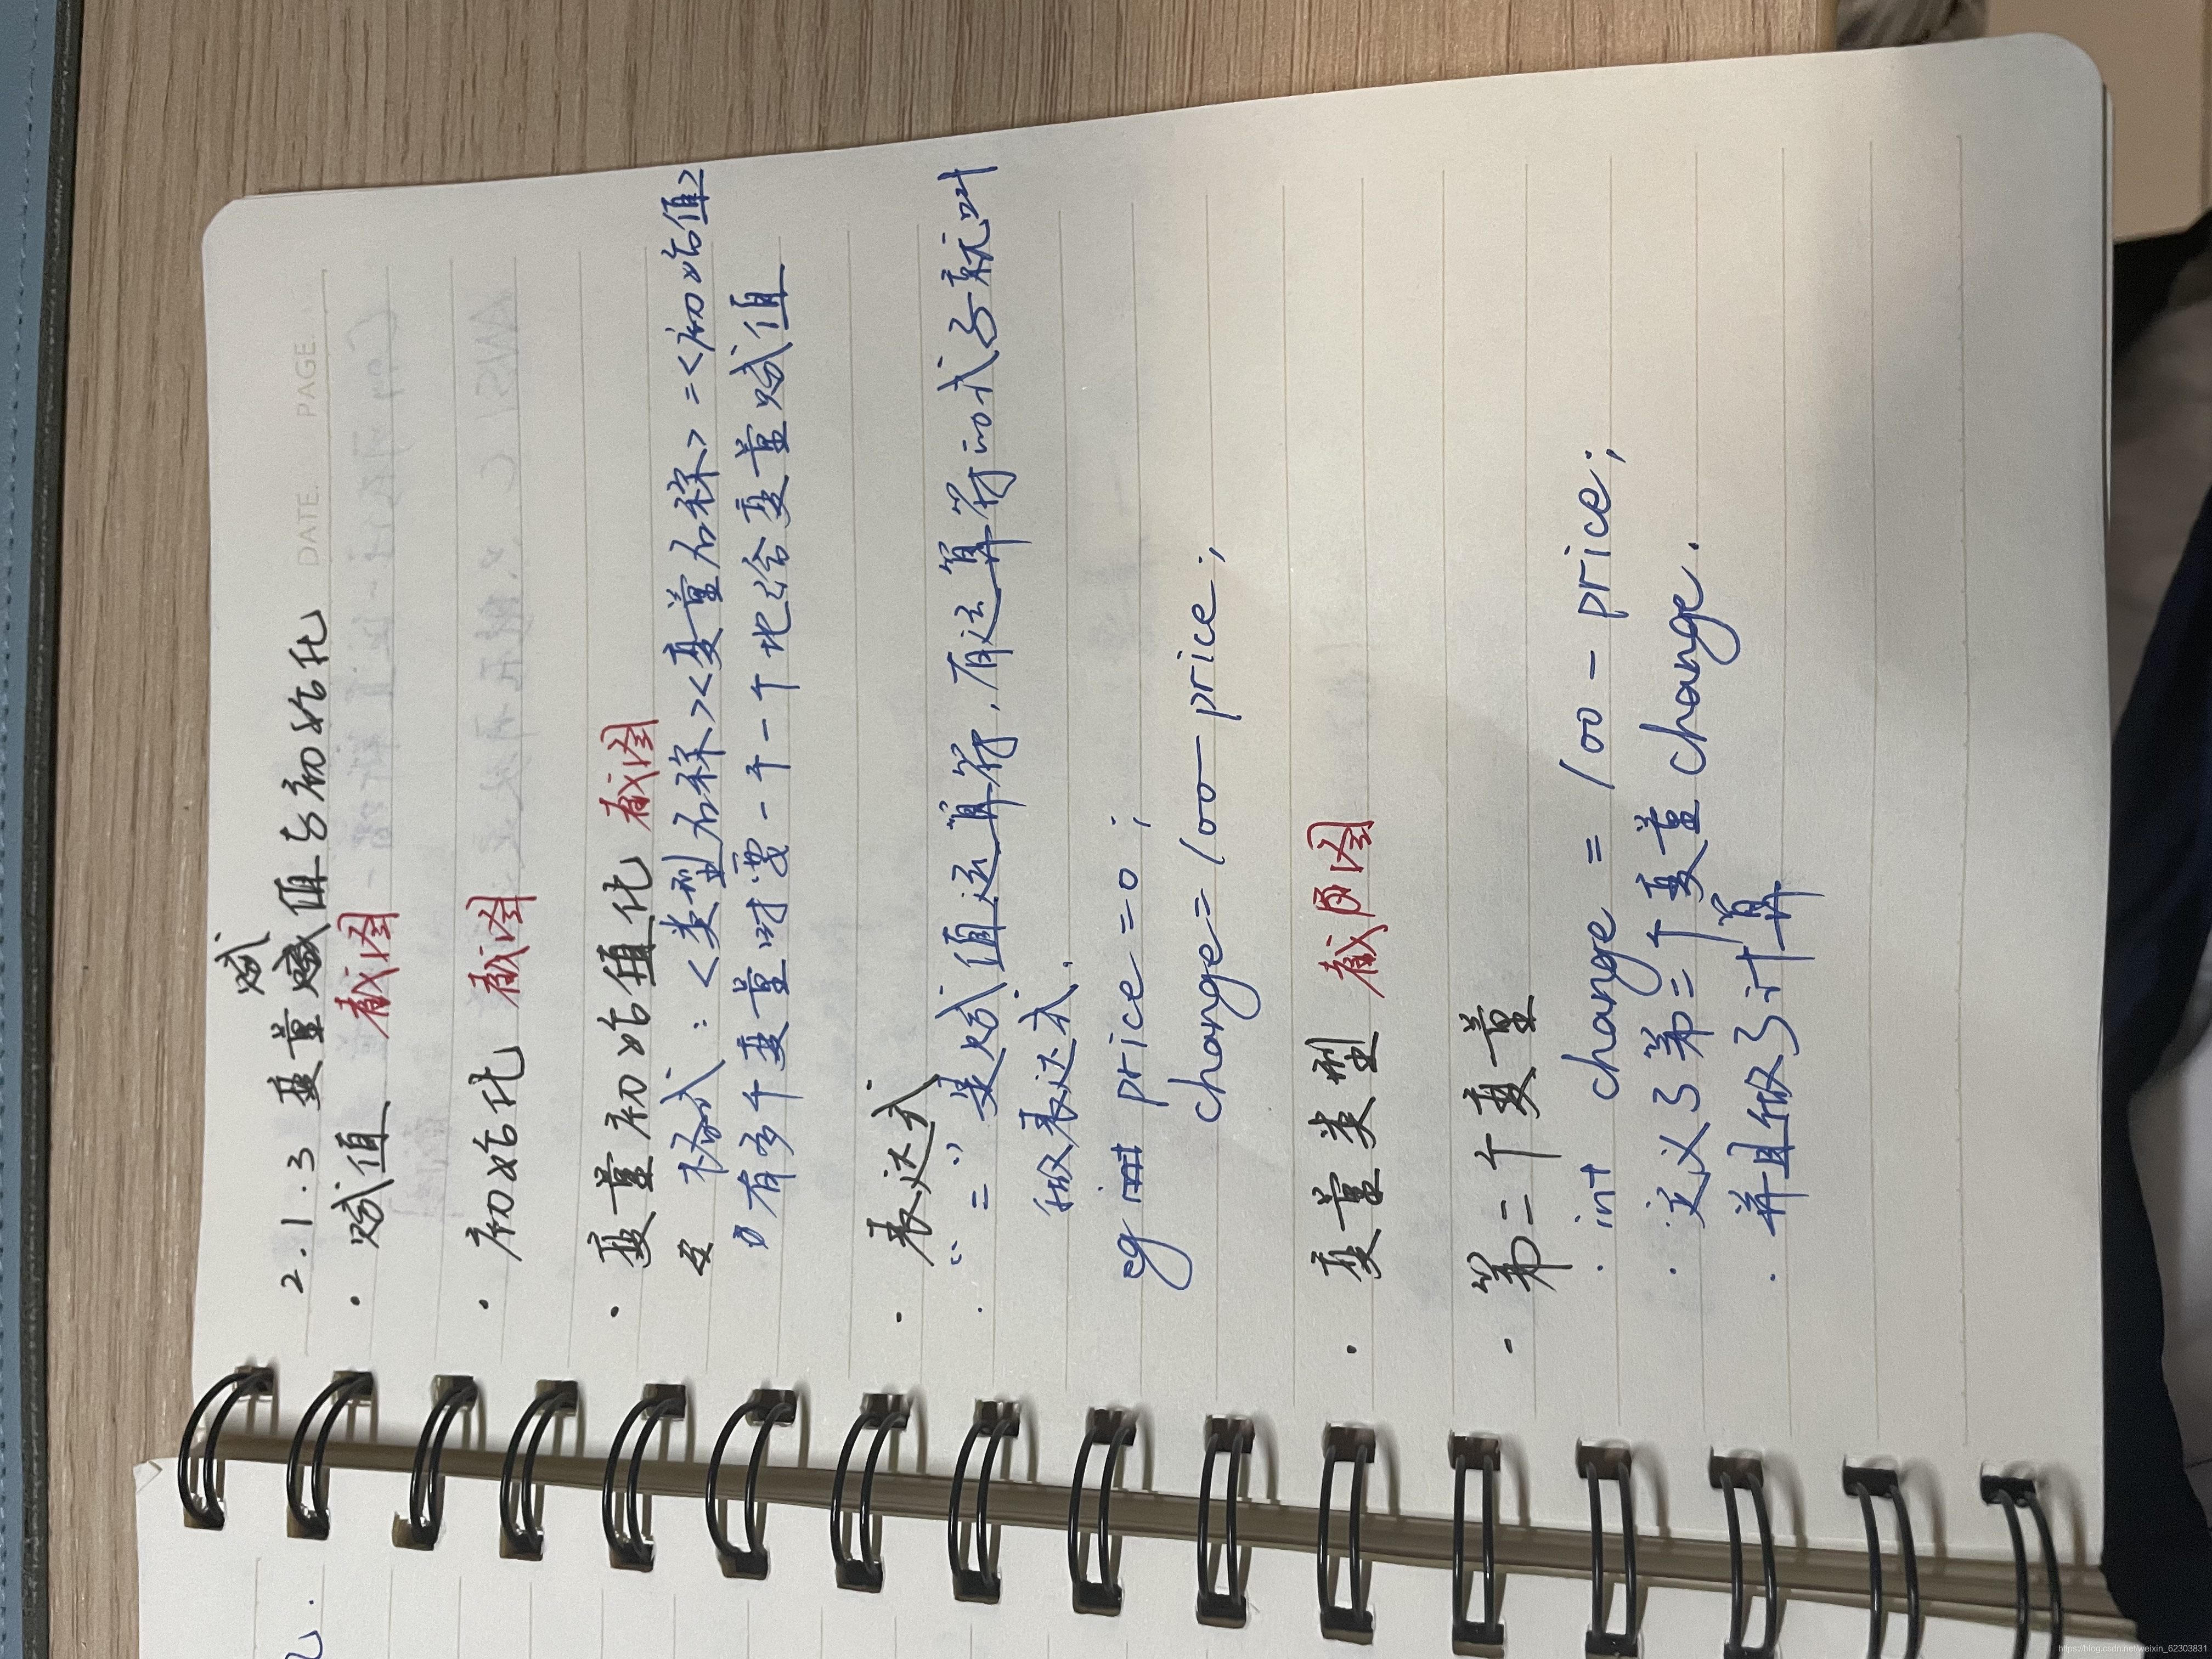 DATE. PAGE.
赋
2.1.3 变量赋值与初始化
· 赋值 截图
· 初始化 截图
· 变量初始值化 截图
格式：<类型名称><变量名称>=<初始值>
有多个变量时要一个一个地给变量赋值
· 表达式
· “=”是赋值运算符，有运算符的式子就叫
做表达式.
eg int price=0;
change=100-price;
· 变量类型 截图
· 第二个变量
· int change = 100 - price;
· 定义了第二个变量change.
· 并且做了计算
https://blog.csdn.net/weixin_62303831